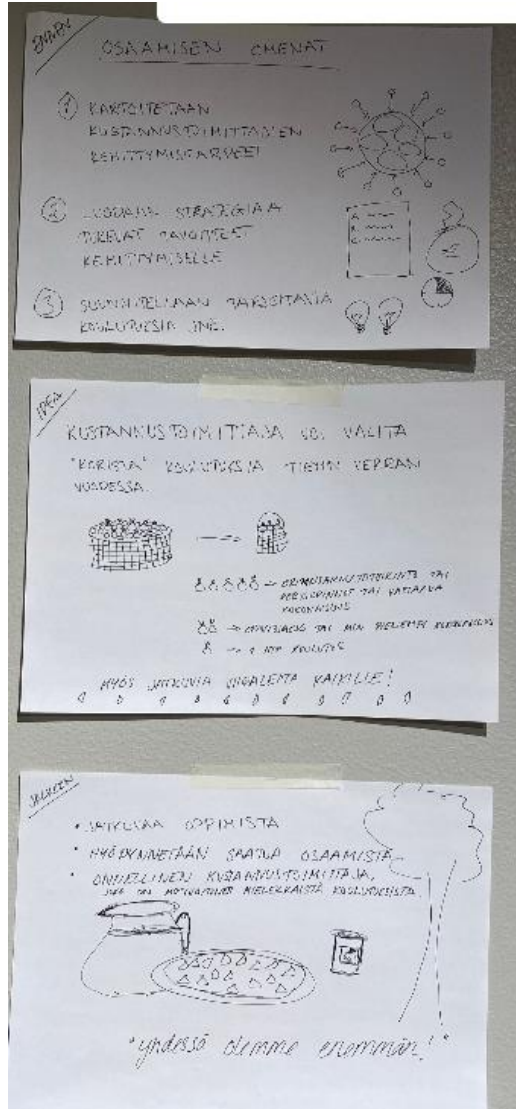 ENNEN
OSAAMISEN OMENAT
1 KARTOITETAAN
KUSTANNUSTOIMITTAJIEN
KEHITTYMISTARPEET
2 LUODAAN STRATEGIAA
TUKEVAT TAVOITTEET
KEHITTYMISELLE
3 SUUNNITELLAAN TARVITTAVIA
KOULUTUKSIA JNE.
A
B
C
IDEA
KUSTANNUSTOIMITTAJA VOI VALITA
"KORISTA" KOULUTUKSIA TIETYN VERRAN
VUODESSA.
TAI
TAI VASTAAVA
KOKONAISUUS
TAI MUU
→ 1 KOULUTUS
MYÖS JATKUVIA KAIKILLE!
JÄLKEEN
• JATKUVAA OPPIMISTA
• HYÖDYNNETÄÄN SAATUA OSAAMISTA
• ONNELLINEN KUSTANNUSTOIMITTAJA,
JOKA ON MOTIVOITUNUT MIELEKKÄISTÄ KOULUTUKSISTA.
"yhdessä olemme enemmän!"